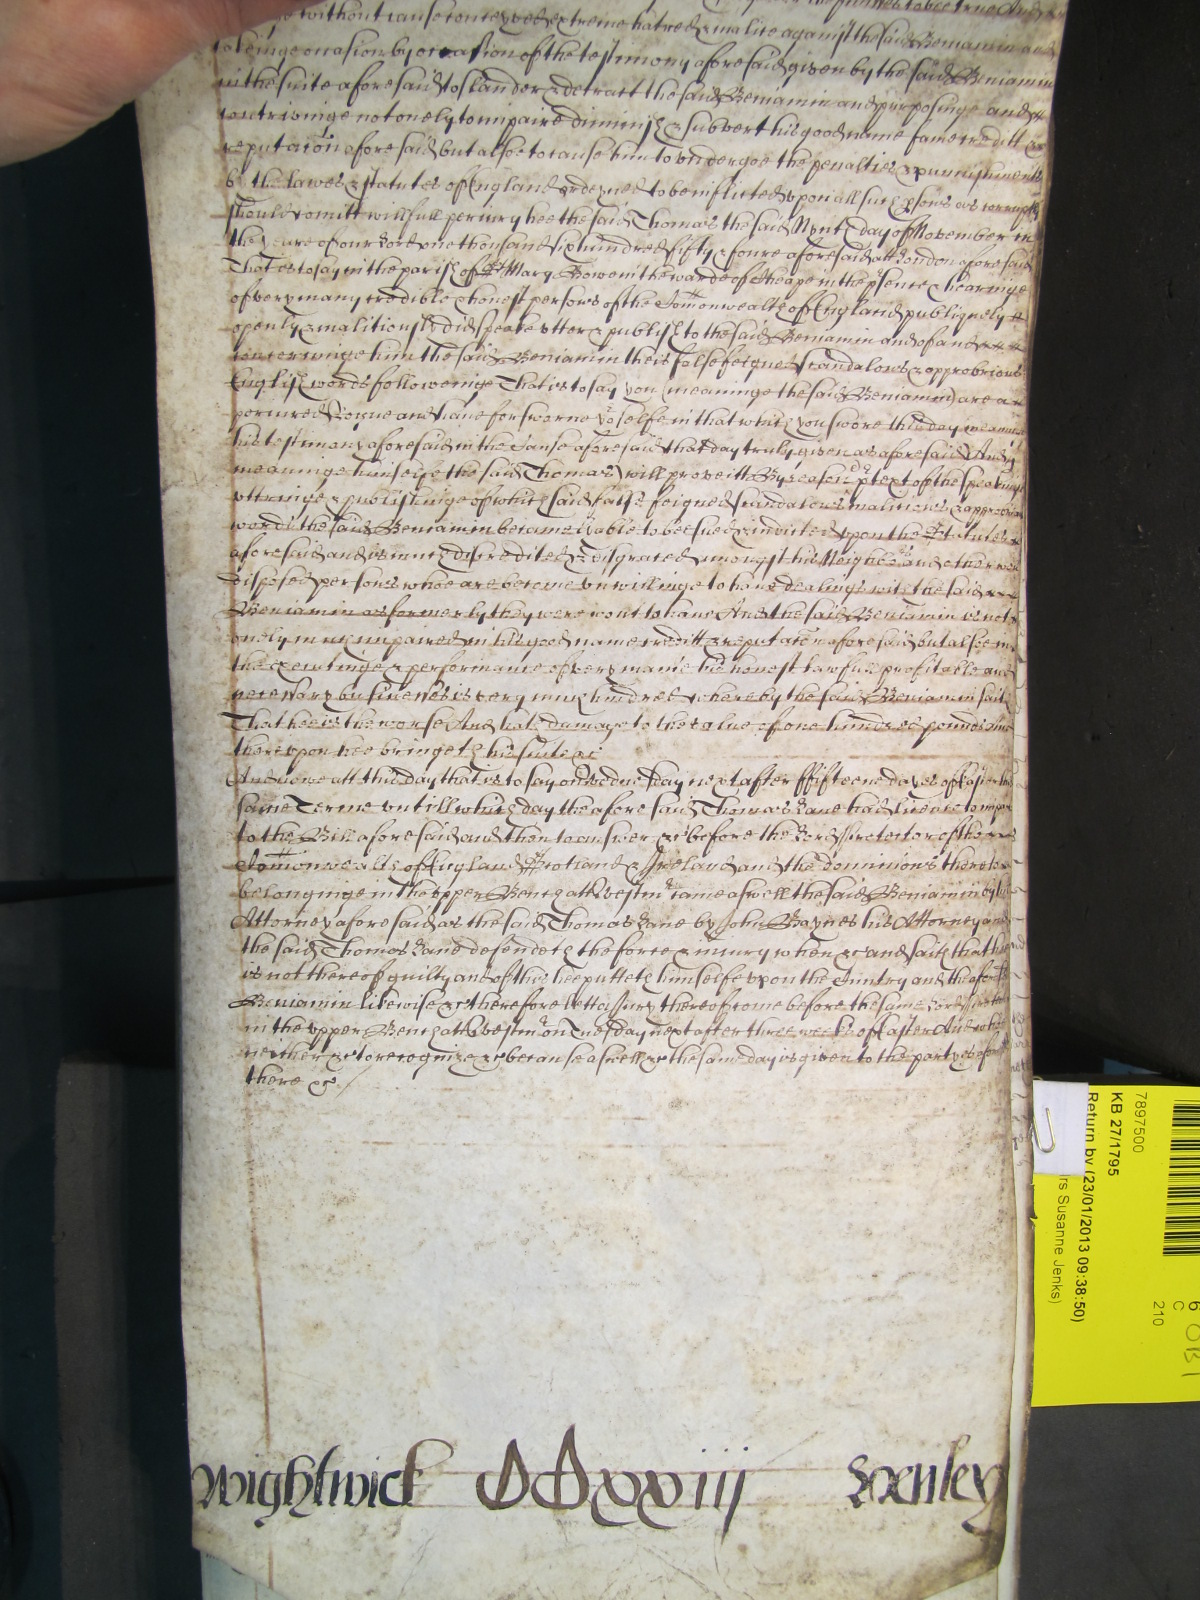 without cause conceyved extreme hatred & malice against the said Beniamin and
takeinge occasion by occasion of the testimony aforesaid given by the said Beniamin
in the suite aforesaid to slander & detract the said Beniamin and purposinge and
contrivinge not onely to impaire diminish & subvert his good name fame creditt &
reputacōn aforesaid but alsoe to cause him to undergoe the penalties & punishments
by the lawes & statutes of England ordeyned to be inflicted upon all such psons as corruptly
should comitt willfull periury hee the said Thomas the said Nynth day of November in
the yeare of our Lord one thousand six hundred fifty & foure aforesaid att London aforesaid
That is to say in the parish of St Mary Bowe in the warde of Cheape in the psence & hearinge
of very many credible & honest persons of the Comonwealth of England publiquely &
openly & malitiously did speake utter & publish to the said Beniamin and of and
concerninge him the said Beniamin theis false feigned scandalows & approbrious
English words followeinge That is to say you (meaninge the said Beniamin) are a
periured Rogue and have forsworne yor selfe in that which you swore this day meaninge
his testimony aforesaid in the Cause aforesaid that day truly given as aforesaid And I
meaninge himselfe the said Thomas) will prove itt By reason & ptext of the speakinge
uttringe & publishinge of which said false feigned scandalows malitious & approbrious
words the said Beniamin became lyable to bee sued & indicted upon the Statutes
aforesaid and is much discredited & disgraced amongst his Neighbors and other well
disposed persons whoe are become unwillinge to have dealings with the said
Beniamin as formerly they were wont to have And the said Beniamin is not
onely much impaired in his good name creditt & reputacōn aforesaid but alsoe in
the executinge & performance of very manie his honest lawfull profitable and
necessary busines is very much hindred whereby the said Beniamin saith
That hee is the worse And hath damage to the value of one hundred pounds And
thereupon hee bringeth his suite &c
And nowe att this day that is to say on Wednesday next after ffifteene dayes of Easter this
same Terme untill which day the aforesaid Thomas Lane had licence to imparle
to the Bill aforesaid and then to answer &c before the Lord Protector of the
Comonwealth of England Scotland & Ireland and the dominions thereto
belonginge in the upper Bench att Westmr came aswell the said Beniamin by his
Attorney aforesaid as the said Thomas Lane by John Baynes his Attorney and
the said Thomas Lane defendeth the force & iniury when &c and saith that hee
is not thereof guilty and of this hee putteth himselfe upon the Cuntry and the aforesaid
Beniamin likewise &c therefore lett a Jury thereof come before the same Lord Protector
in the upper Bench att Westmr on Tuesday next after three weeks of Easter And whoe
neither &c to recognize &c because aswell &c the same day is given to the partyes aforesaid
there &c
Wightwick xxiii
7897500
KB 27/1795
Return by (23/01/2013 09:38:50)
rs Susanne Jenks)
210